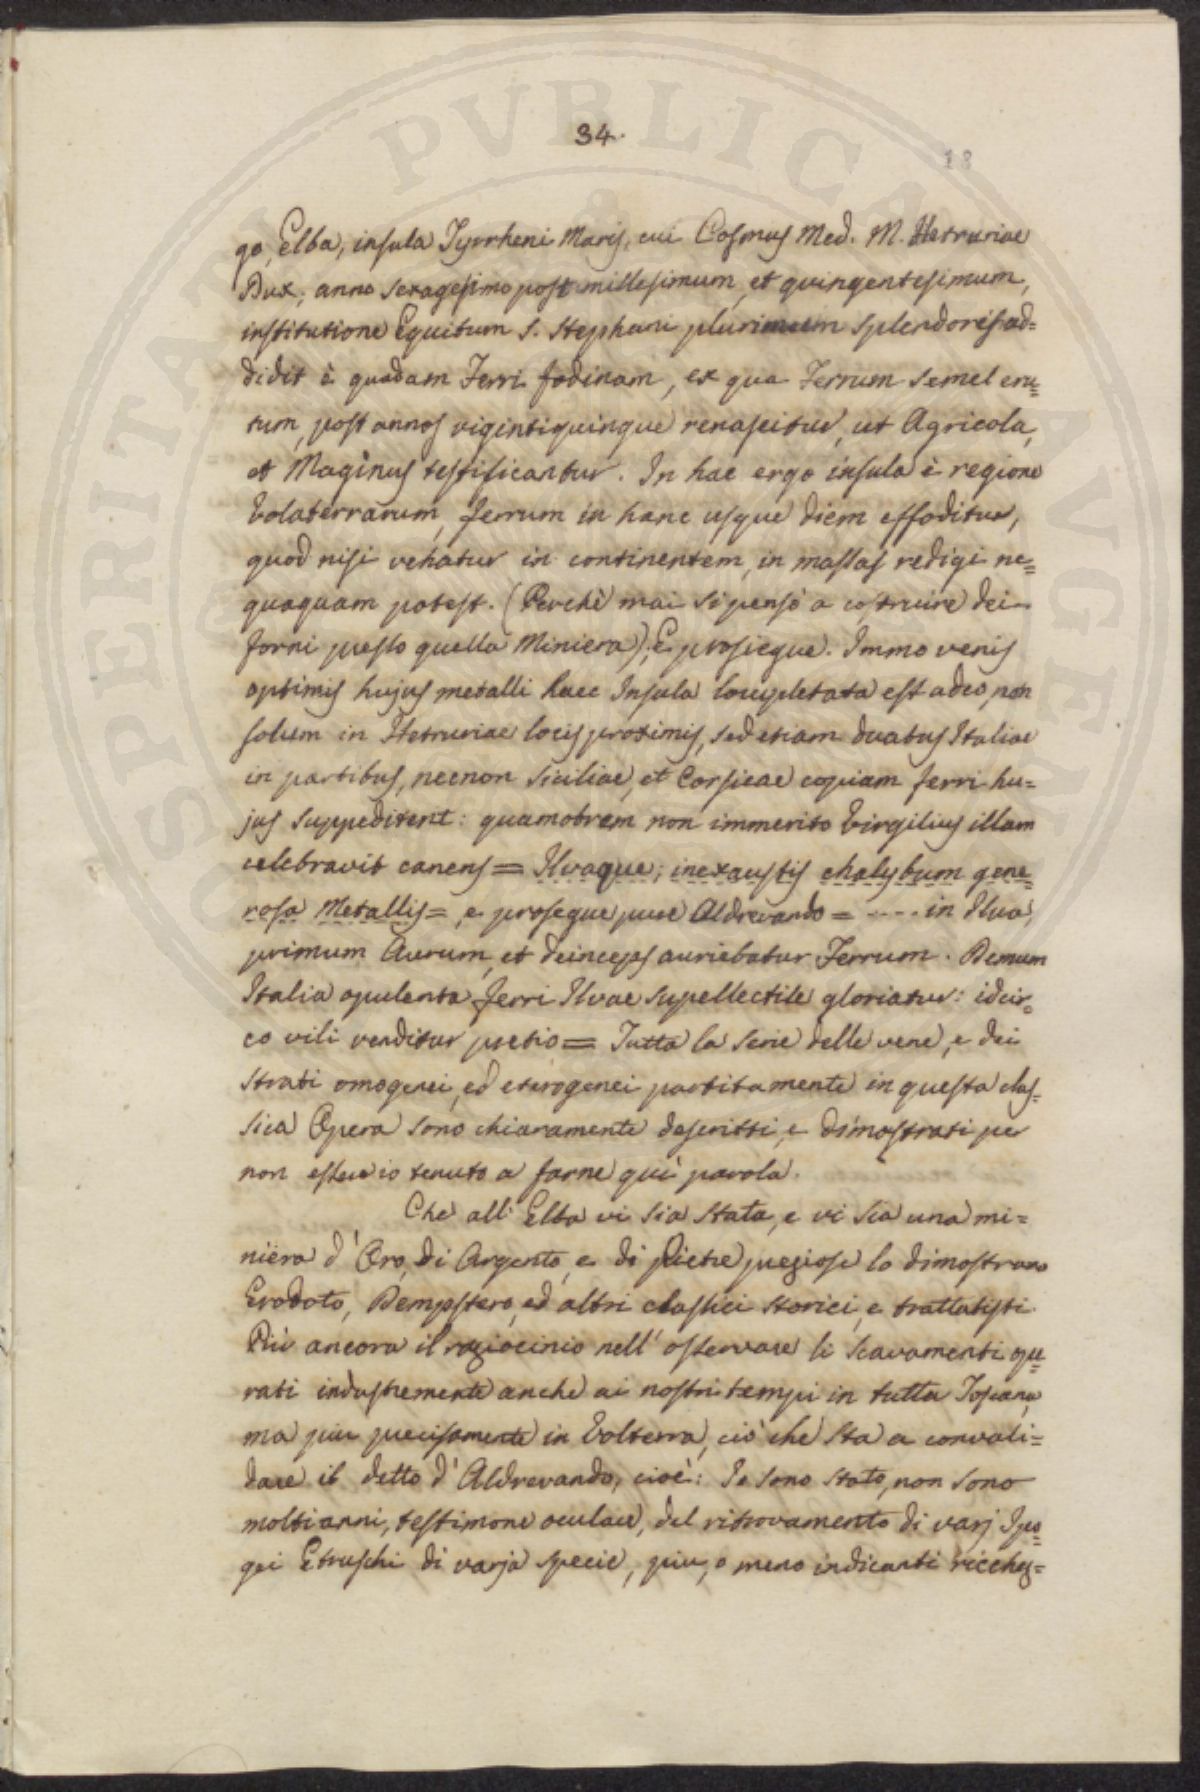 34.
18
go, Elba, insula Tyrrheni Maris, cui Cosmus Med. M. Hetruriae
Dux, anno sexagesimo post millesimum, et quingentesimum,
institutione Equitum S. Stephani plurimum splendoris ad=
didit è quadam Ferri fodinam, ex qua Ferrum semel eru=
tum, post annos vigintiquinque renascitur, ut Agricola,
et Maginus testificantur. In hac ergo insula è regione
Volaterrarum, ferrum in hanc usque diem effoditur,
quod nisi vehatur in continentem, in massas redigi ne=
quaquam potest. (Perchè mai si pensò a costruire dei
forni presso quella Miniera); E prosiegue. Immo venis
optimis hujus metalli haec Insula locupletata est adeo, non
solum in Hetruriae locis proximis, sed etiam duabus Italiae
in partibus, necnon Siciliae, et Corsicae copiam ferri hu=
jus suppeditent: quamobrem non immerito Virgilius illam
celebravit canens = Ilvaque, inexaustis chalybum gene=
rosa Metallis =, e prosegue pure Aldrevando = .... in Ilva,
primum Aurum, et deinceps auriebatur Ferrum. Demum
Italia opulenta ferri Ilvae supellectile gloriatur: idcir=
co vili venditur pretio = Tutta la serie delle vene, e dei
strati omogenei, ed eterogenei partitamente in questa clas=
sica Opera sono chiaramente descritti, e dimostrati per
non essere io tenuto a farne quì parola.
Che all' Elba vi sia stata, e vi sia una mi=
niera d' Oro, di Argento, e di Pietre preziose lo dimostrano
Erodoto, Dempstero, ed altri classici storici, e trattatisti
Più ancora il raziocinio nell' osservare li scavamenti ope=
rati industremente anche ai nostri tempi in tutta Toscana,
ma piu precisamente in Volterra, ciò che sta a convali=
dare il detto d' Aldrevando, cioè: Io sono stato, non sono
molti anni, testimone oculare, del ritrovamento di varj Ipo=
gei Etruschi di varja specie, piu, o meno indicanti ricchez=